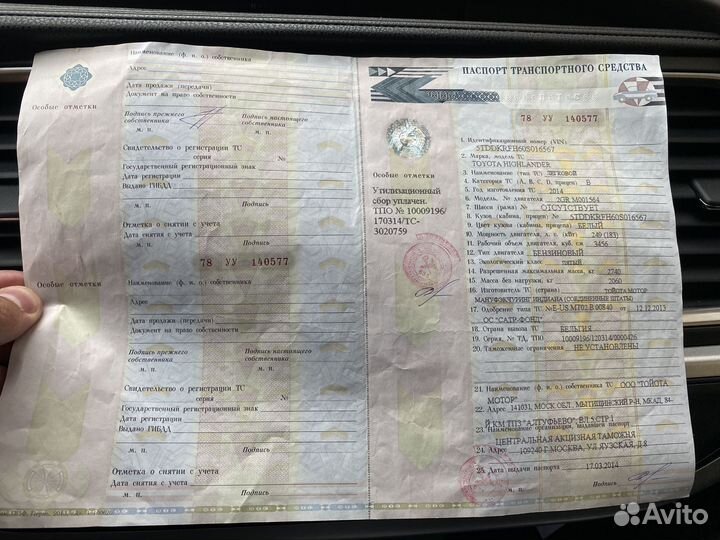 Наименование (ф. и. о.) собственника
Адрес
Дата продажи (передачи)
Документ на право собственности
Особые отметки
Подпись прежнего собственника
Подпись настоящего собственника
м. п.
м. п.
Свидетельство о регистрации ТС
серия №
Государственный регистрационный знак
Дата регистрации
Выдано ГИБДД
м. п. Подпись
Отметка о снятии с учета
Дата снятия с учета
м. п. Подпись
78 УУ 140577
Особые отметки
Наименование (ф. и. о.) собственника
Адрес
Дата продажи (передачи)
Документ на право собственности
Подпись прежнего собственника
Подпись настоящего собственника
м. п.
м. п.
Свидетельство о регистрации ТС
серия №
Государственный регистрационный знак
Дата регистрации
Выдано ГИБДД
м. п. Подпись
Отметка о снятии с учета
Дата снятия с учета
м. п. Подпись
ПАСПОРТ ТРАНСПОРТНОГО СРЕДСТВА
78 УУ 140577
Особые отметки
Утилизационный
сбор уплачен.
ТПО № 10009196/
170314/ТС-
3020759
1. Идентификационный номер (VIN)
5TDDKRFH60S016567
2. Марка, модель ТС
TOYOTA HIGHLANDER
3. Наименование (тип ТС) ЛЕГКОВОЙ
4. Категория ТС (А, В, С, D, прицеп) B
5. Год изготовления ТС 2014
6. Модель, № двигателя 2GR M001564
7. Шасси (рама) № ОТСУТСТВУЕТ
8. Кузов (кабина, прицеп) № 5TDDKRFH60S016567
9. Цвет кузова (кабины, прицепа) БЕЛЫЙ
10. Мощность двигателя, л. с. (кВт) 249 (183)
11. Рабочий объем двигателя, куб. см 3456
12. Тип двигателя БЕНЗИНОВЫЙ
13. Экологический класс ПЯТЫЙ
14. Разрешенная максимальная масса, кг 2740
15. Масса без нагрузки, кг 2060
16. Изготовитель ТС (страна) ТОЙОТА МОТОР
МАНУФЭКЧУРИНГ ИНДИАНА (СОЕДИНЕННЫЕ ШТАТЫ)
17. Одобрение типа ТС №E-US.MT02.B.00840 от 12.12.2013
ОС "САТР-ФОНД"
18. Страна вывоза ТС БЕЛЬГИЯ
19. Серия, № ТД, ТПО 10009196/120314/0000426
20. Таможенные ограничения НЕ УСТАНОВЛЕНЫ
21. Наименование (ф. и. о.) собственника ТС ООО "ТОЙОТА
МОТОР"
22. Адрес 141031, МОСК. ОБЛ., МЫТИЩИНСКИЙ Р-Н, МКАД, 84-
Й КМ ТПЗ "АЛТУФЬЕВО", ВЛ.5 СТР.1
23. Наименование организации, выдавшей паспорт
ЦЕНТРАЛЬНАЯ АКЦИЗНАЯ ТАМОЖНЯ
24. Адрес 109240 Г МОСКВА, УЛ ЯУЗСКАЯ, Д 8
25. Дата выдачи паспорта 17.03.2014
м. п. Подпись
Avito